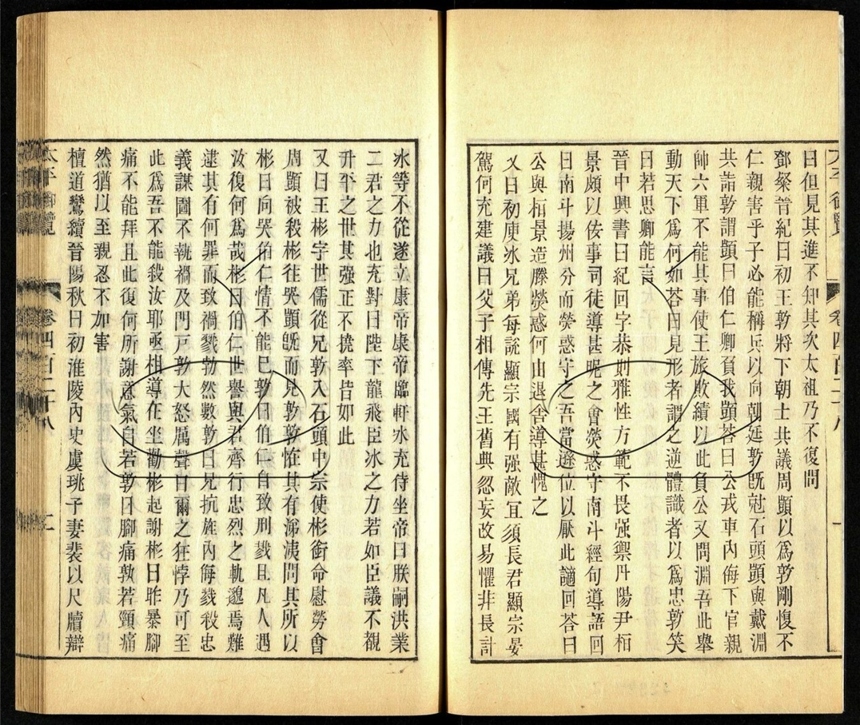 曰但見其進不知其次太祖乃不復問
鄧粲晉紀曰初王敦將下朝士共議周顗以爲敦剛愎不
仁親害乎子必能稱兵以向朝廷敦旣剋石頭顗與戴淵
共詣敦謂顗曰伯仁卿負我顗荅曰公戎車內侮下官親
帥六軍不能其事使王旅敗績以此負公又問淵吾此舉
動天下爲何如荅曰見形者謂之逆體識者以爲忠敦笑
曰若思卿能言
晉中興書曰紀回字恭則雅性方範不畏强禦丹陽尹桓
景頗以佞事司徒導甚昵之會熒惑守南斗經旬導語回
曰南斗揚州分而熒惑守之吾當遜位以厭此讁回荅曰
公與桓景造膝熒惑何由退舍導甚愧之
又曰初庾氷兄弟每說顯宗國有强敵宜須長君顯宗晏
駕何充建議曰父子相傳先王舊典忽妄改易懼非長計
氷等不從遂立康帝康帝臨軒氷充侍坐帝曰朕嗣洪業
二君之力也充對曰陛下龍飛臣氷之力若如臣議不覩
升平之世其强正不撓率皆如此
又曰王彬字世儒從兄敦入石頭中宗使彬銜命慰勞會
周顗被殺彬往哭顗旣而見敦敦恠其有涕洟問其所以
彬曰向哭伯仁情不能已敦曰伯仁自致刑戮且凡人遇
汝復何爲哉彬曰伯仁世譽與君齊行忠烈之軌邈焉難
逮其有何罪而致禍戮勃然數敦曰兄抗旌內侮戮殺忠
義謀圖不軌禍及門戸敦大怒厲聲曰爾之狂悖乃可至
此爲吾不能殺汝耶丞相導在坐勸彬起謝彬曰昨暴腳
痛不能拜且此復何所謝意氣自若敦曰腳痛敦若頸痛
然猶以至親忍不加害
檀道鸞續晉陽秋曰初淮陵內史虞珧子妻裴以尺牘辯
太平御覽
卷四百二十八